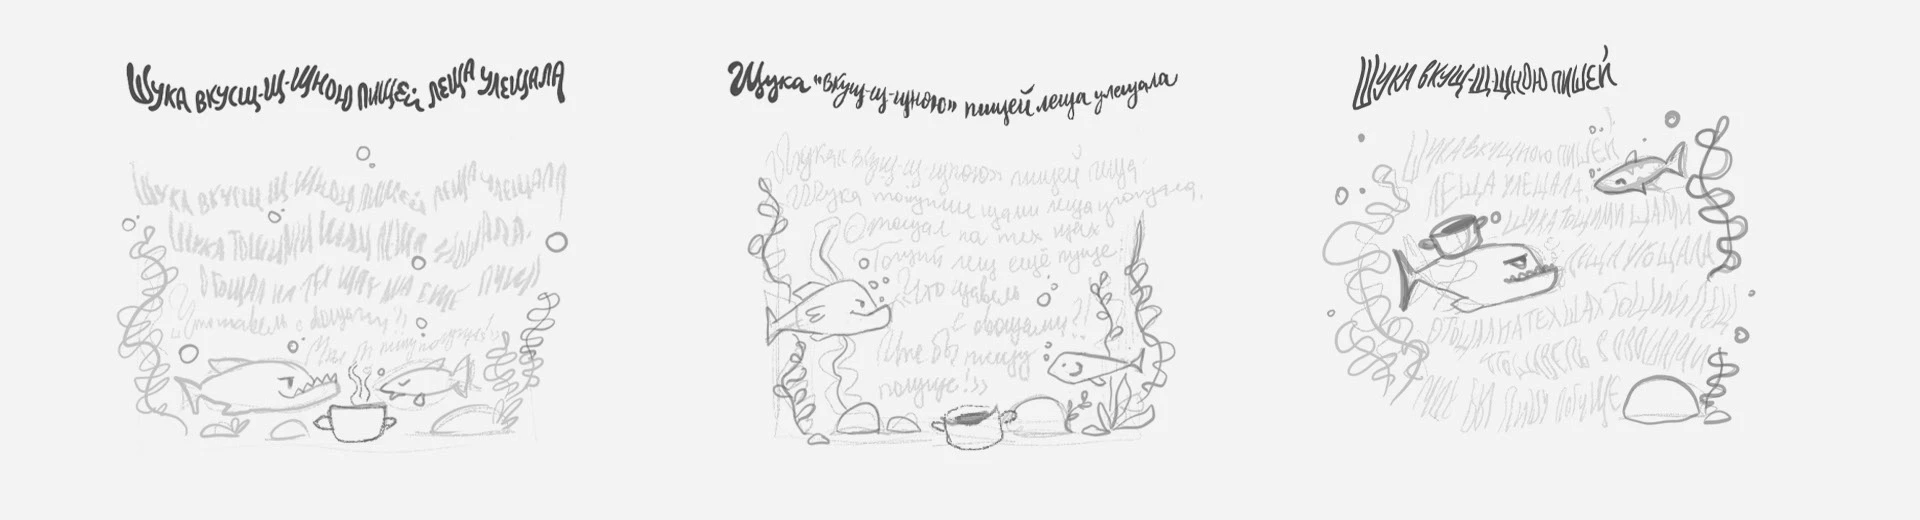 Щука вкусщ-щ-щною пищей леща улещала
Щука вкусщ-щ-щною пищей леща улещала
Щука тощими щами леща
Отощал на тех щах ещё пуще
Щука "вкущ-щ-щною" пищей леща улещала
Щука вкущ-щ-щною пищей леща
Щука тощими щами леща угощала.
Отощал на тех щах
Тощий лещ ещё пуще.
"Что щавель
с овощами?!
Мне бы пищу
погуще!"
Щука вкущ-щ-щною пищей
Щука вкущщною пищей
леща улещала
Щука тощими щами
леща угощала
Отощал на тех щах тощий лещ
то щавель с овощами
Мне бы пищу погуще